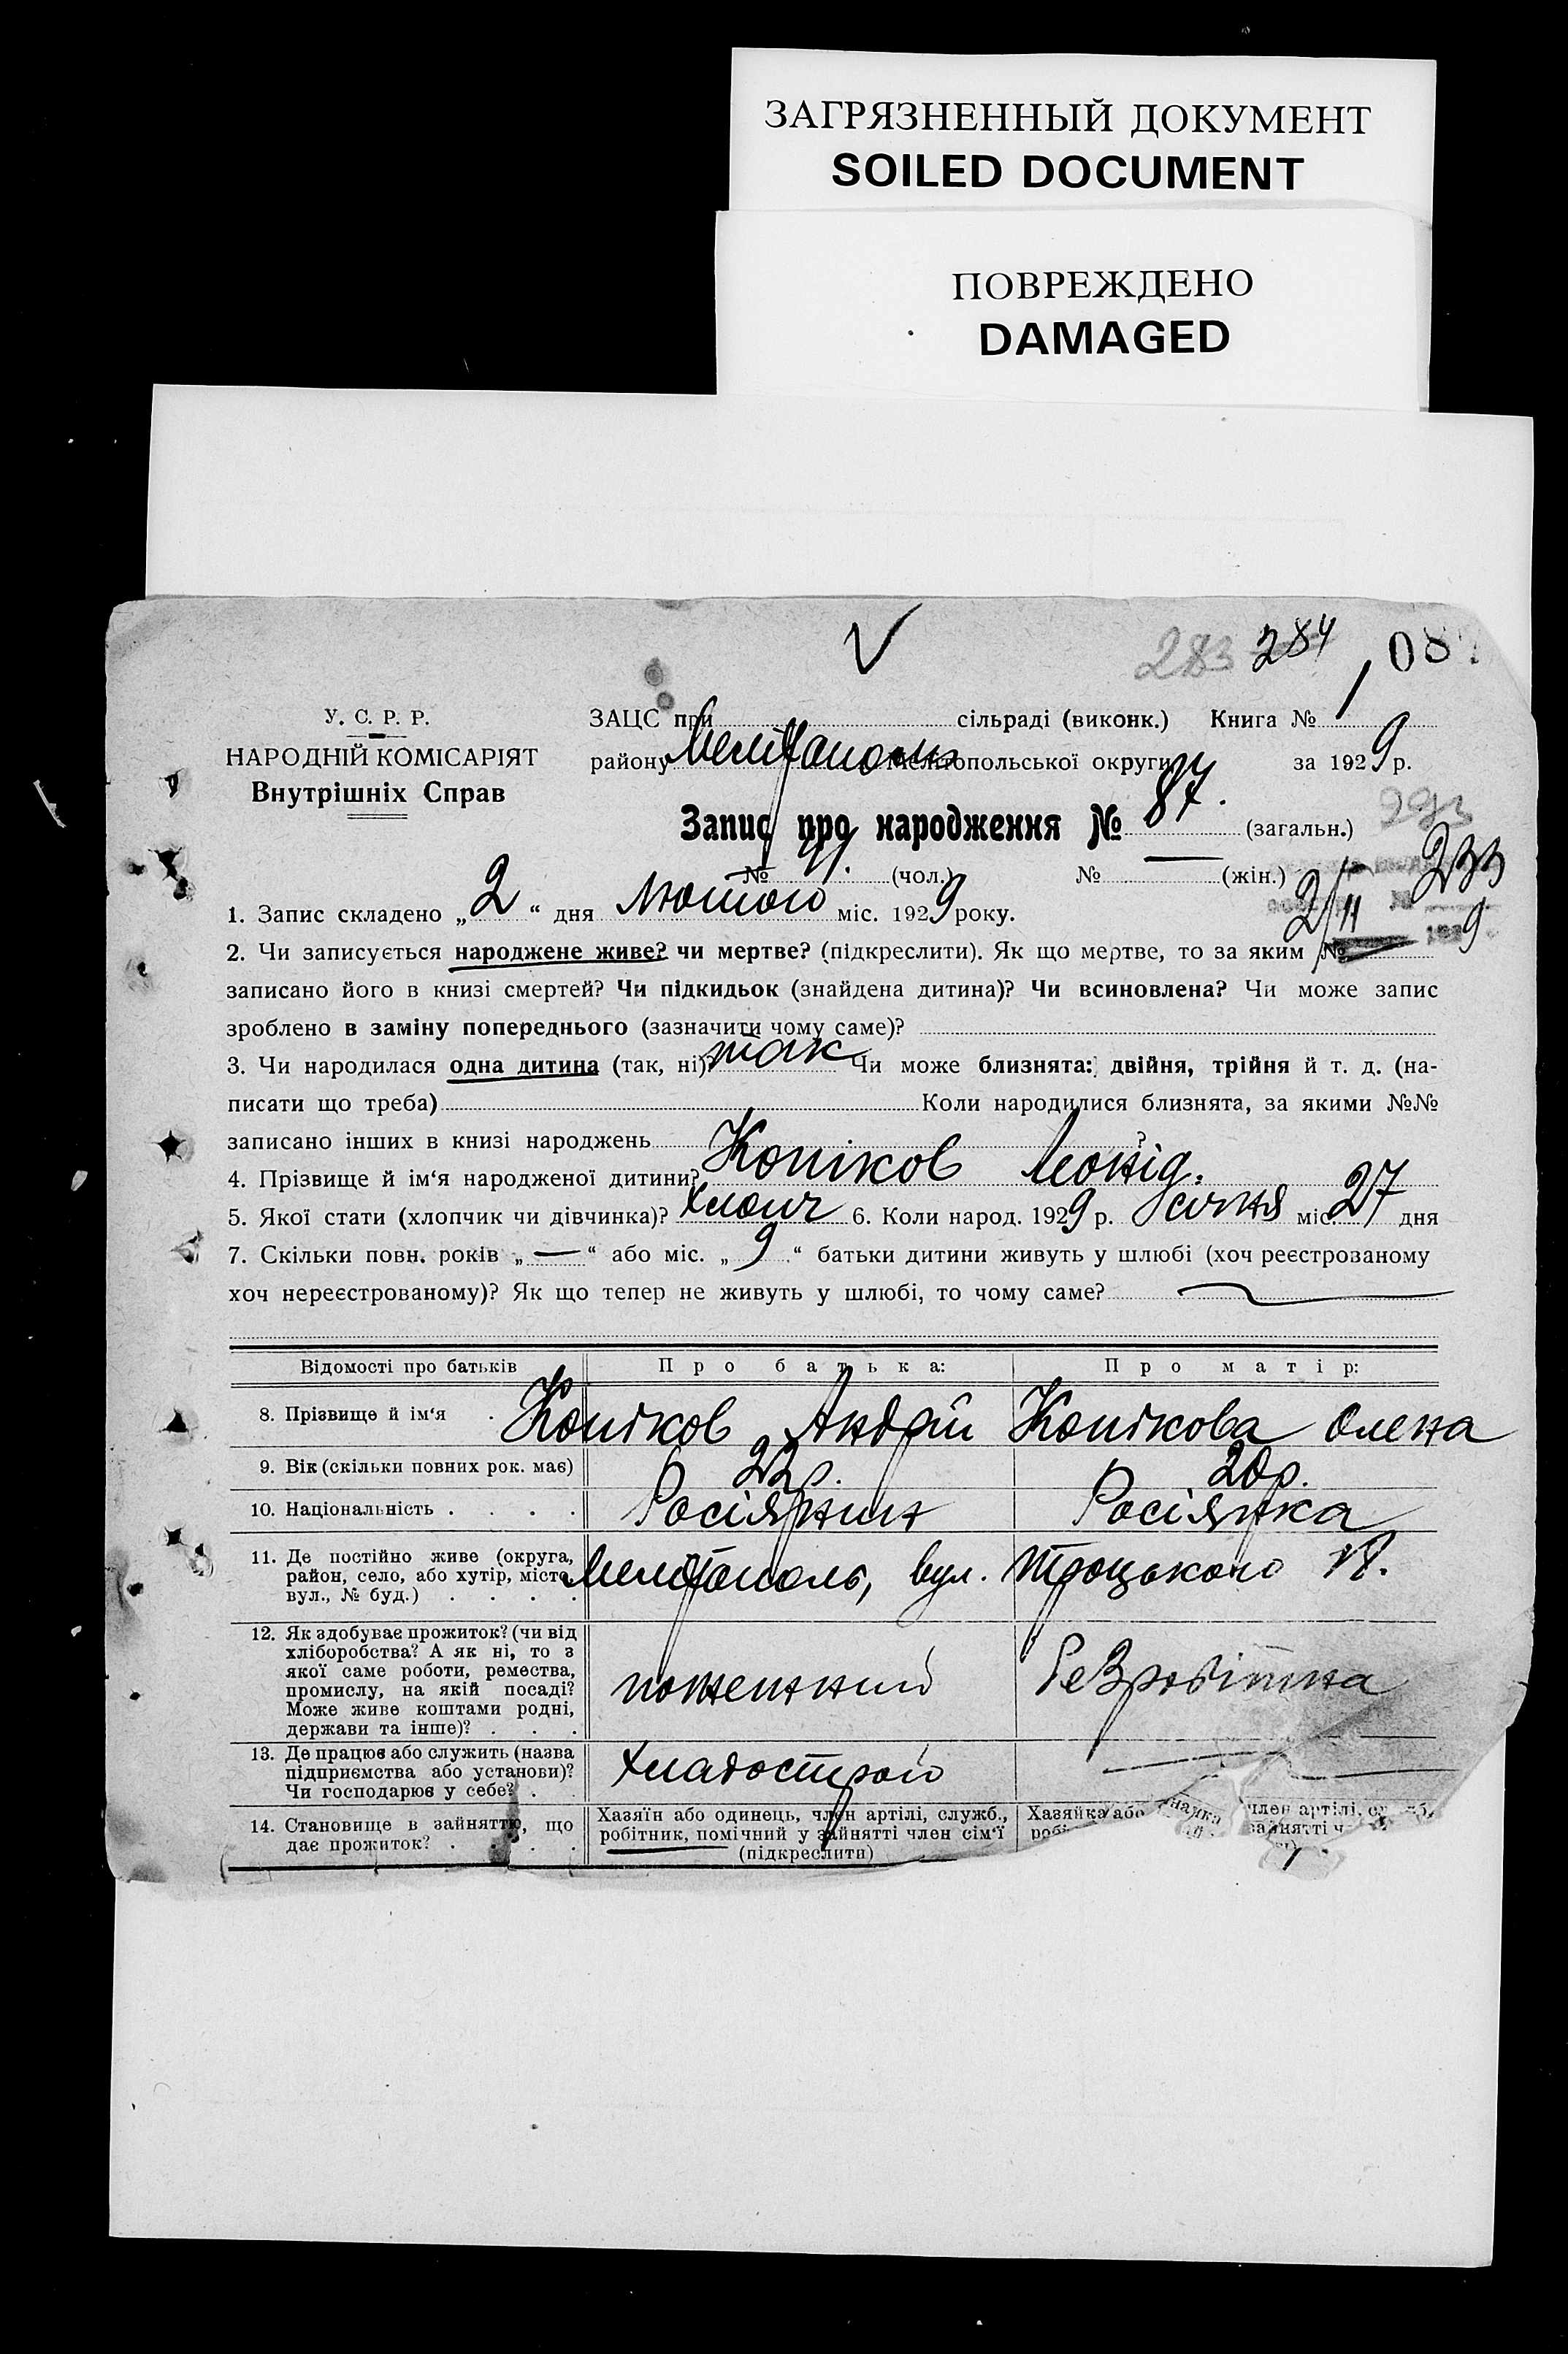 ЗАГРЯЗНЕННЫЙ ДОКУМЕНТ
SOILED DOCUMENT
ПОВРЕЖДЕНО
DAMAGED
283 284 108
У. С. Р. Р.
НАРОДНІЙ КОМІСАРІЯТ
Внутрішніх Справ
ЗАЦС при сільраді (виконк.) Книга №
району Мелітополь Мелітопольської округи за 1929 р.
Запис про народження № 87. (загальн.)
293
233
№ (чол.) № — (жін.)
2/II 9
1. Запис складено „2“ дня Лютого міс. 1929 року.
2. Чи записується народжене живе? чи мертве? (підкреслити). Як що мертве, то за яким №
записано його в книзі смертей? Чи підкидьок (знайдена дитина)? Чи всиновлена? Чи може запис
зроблено в заміну попереднього (зазначити чому саме)?
3. Чи народилася одна дитина (так, ні)? так Чи може близнята: двійня, трійня й т. д. (на-
писати що треба) Коли народилися близнята, за якими №№
записано інших в книзі народжень ?
4. Прізвище й ім‘я народженої дитини? Копіков Леонід.
5. Якої стати (хлопчик чи дівчинка)? Хлопч 6. Коли народ. 1929 р. Січня міс. 27 дня
7. Скільки повн. років „—“ або міс. „9“ батьки дитини живуть у шлюбі (хоч реєстрованому
хоч нереєстрованому)? Як що тепер не живуть у шлюбі, то чому саме? —
Відомості про батьків Про батька: Про матір:
8. Прізвище й ім‘я . Копіков Андрій Копікова Олена
9. Вік (скільки повних рок. має) 22 р. 20 р.
10. Національність . . . . Росіянин Росіянка
11. Де постійно живе (округа,
район, село, або хутір, місто,
вул., № буд.) . . . .
Мелітополь, вул. Троцького
12. Як здобуває прожиток? (чи від
хліборобства? А як ні, то з
якої саме роботи, ремества,
промислу, на якій посаді?
Може живе коштами родні,
держави та інше)? . . .
безробітна
13. Де працює або служить (назва
підприємства або установи)?
Чи господарює у себе? .
14. Становище в зайняттю, що
дає прожиток? . . . .
Хазяїн або одинець, член артілі, служб.,
робітник, помічний у зайнятті член сім‘ї
(підкреслити)
Хазяйка або член артілі,
зайнятті